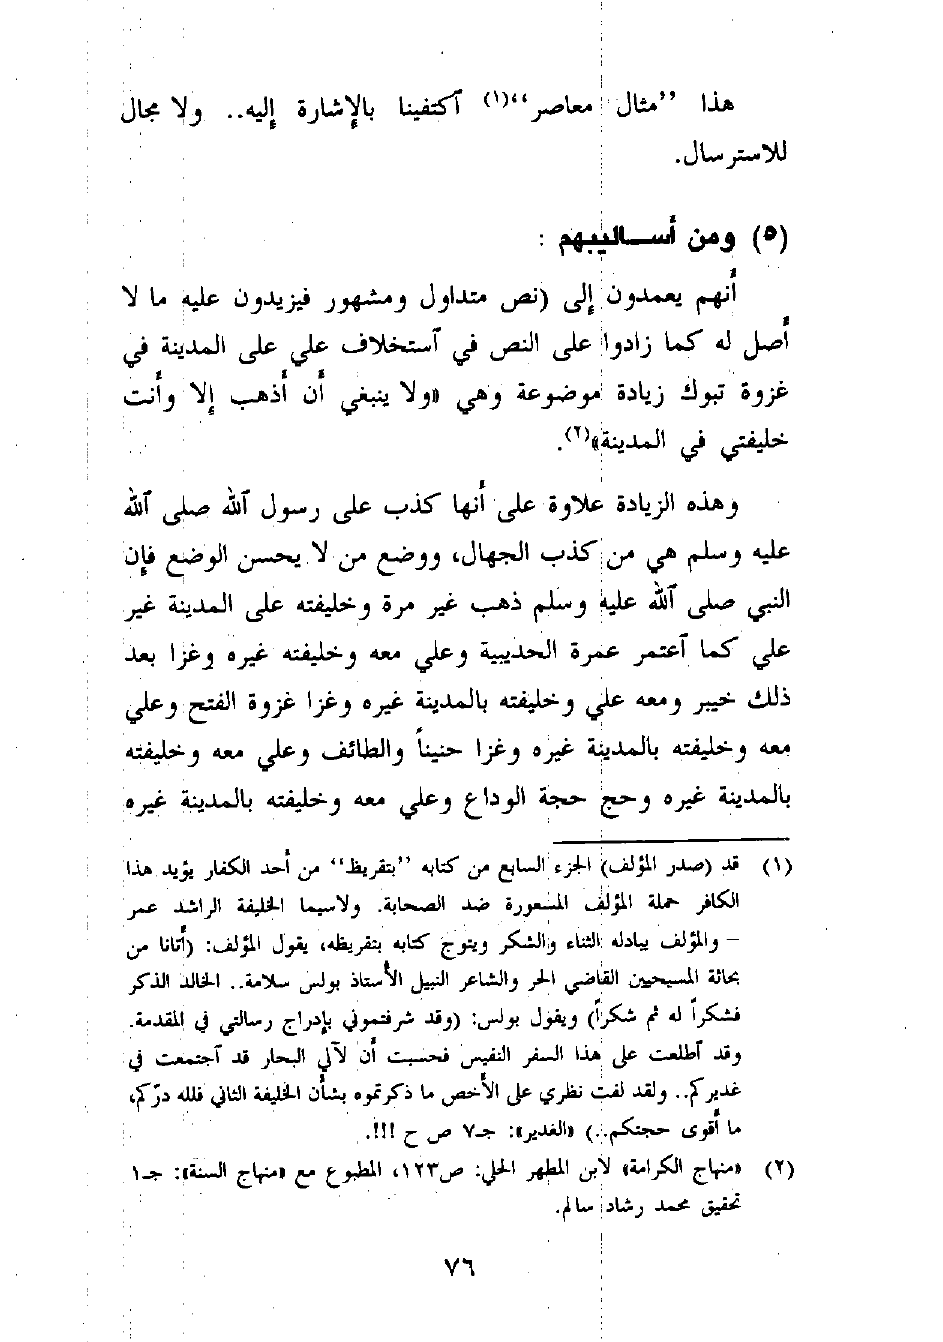 هذا ”مثال معاصر“(١) آكتفينا بالإشارة إليه.. ولا مجال
للاسترسال.
(٥) ومن أساليبهم :
أنهم يعمدون إلى (نص متداول ومشهور فيزيدون عليه ما لا
أصل له كما زادوا على النص في آستخلاف علي على المدينة في
غزوة تبوك زيادة موضوعة وهي «ولا ينبغي أن أذهب إلا وأنت
خليفتي في المدينة»(٢).
وهذه الزيادة علاوة على أنها كذب على رسول آلله صلى آلله
عليه وسلم هي من كذب الجهال، ووضع من لا يحسن الوضع فإن
النبي صلى آلله عليه وسلم ذهب غير مرة وخليفته على المدينة غير
علي كما آعتمر عمرة الحديبية وعلي معه وخليفته غيره وغزا بعد
ذلك خيبر ومعه علي وخليفته بالمدينة غيره وغزا غزوة الفتح وعلي
معه وخليفته بالمدينة غيره وغزا حنيناً والطائف وعلي معه وخليفته
بالمدينة غيره وحج حجة الوداع وعلي معه وخليفته بالمدينة غيره
(١) قد (صدر المؤلف) الجزء السابع من كتابه ”بتقريظ“ من أحد الكفار يؤيد هذا
الكافر حملة المؤلف المسعورة ضد الصحابة. ولاسيما الخليفة الراشد عمر
– والمؤلف يبادله الثناء والشكر ويتوج كتابه بتقريظه، يقول المؤلف: (أتانا من
بحاثة المسيحيين القاضي الحر والشاعر النبيل الأستاذ بولس سلامة.. الخالد الذكر
فشكراً له ثم شكراً) ويقول بولس: (وقد شرفتموني بإدراج رسالتي في المقدمة.
وقد آطلعت على هذا السفر النفيس فحسبت أن لآلي البحار قد آجتمعت في
غديركم.. ولقد لفت نظري على الأخص ما ذكرتموه بشأن الخليفة الثاني فلله درّكم،
ما أقوى حجتكم..) «الغدير»: جـ٧ ص ح !!!.
(٢) «منهاج الكرامة» لابن المطهر الحلي: ص١٢٣، المطبوع مع «منهاج السنة»: جـ١
تحقيق محمد رشاد سالم.
٧٦